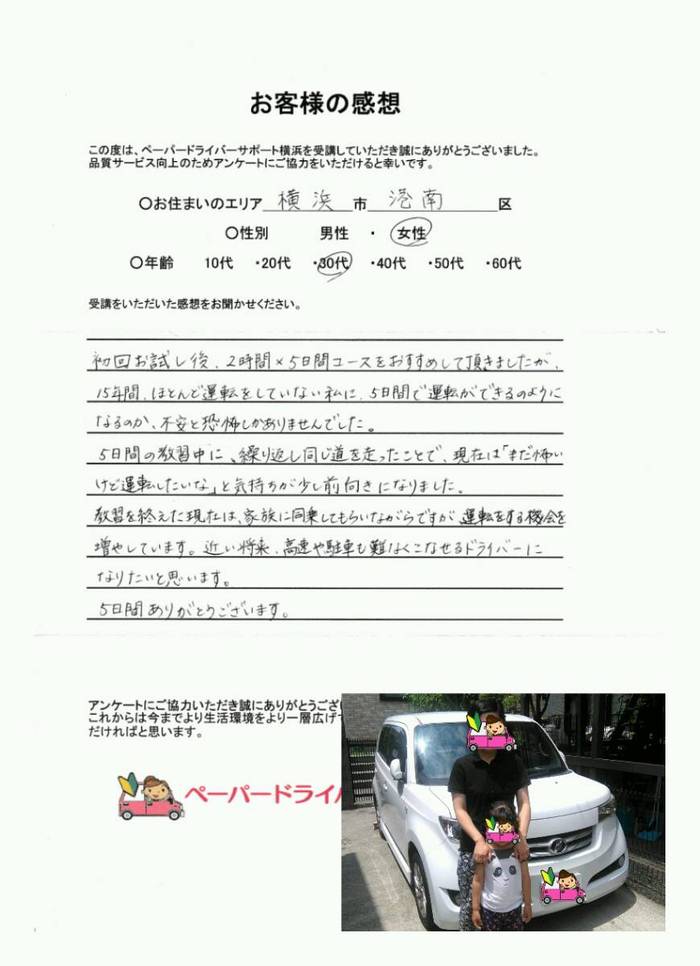 お客様の感想
この度は、ペーパードライバーサポート横浜を受講していただき誠にありがとうございました。
品質サービス向上のためアンケートにご協力をいただけると幸いです。
○お住まいのエリア 横浜 市 港南 区
○性別 男性 ・ 女性
○年齢 10代 ・20代 ・30代 ・40代 ・50代 ・60代
受講をいただいた感想をお聞かせください。
初回お試し後、2時間×5日間コースをおすすめして頂きましたが、
15年間、ほとんど運転をしていない私に、5日間で運転ができるのように
なるのか、不安と恐怖しかありませんでした。
5日間の教習中に、繰り返し同じ道を走ったことで、現在は「まだ怖い
けど運転したいな」と気持ちが少し前向きになりました。
教習を終えた現在は、家族に同乗してもらいながらですが、運転をする機会を
増やしています。近い将来、高速や駐車も難なくこなせるドライバーに
なりたいと思います。
5日間ありがとうございます。
アンケートにご協力いただき誠にありがとうござい
これからは今までより生活環境をより一層広げて
だければと思います。
ペーパードライバ